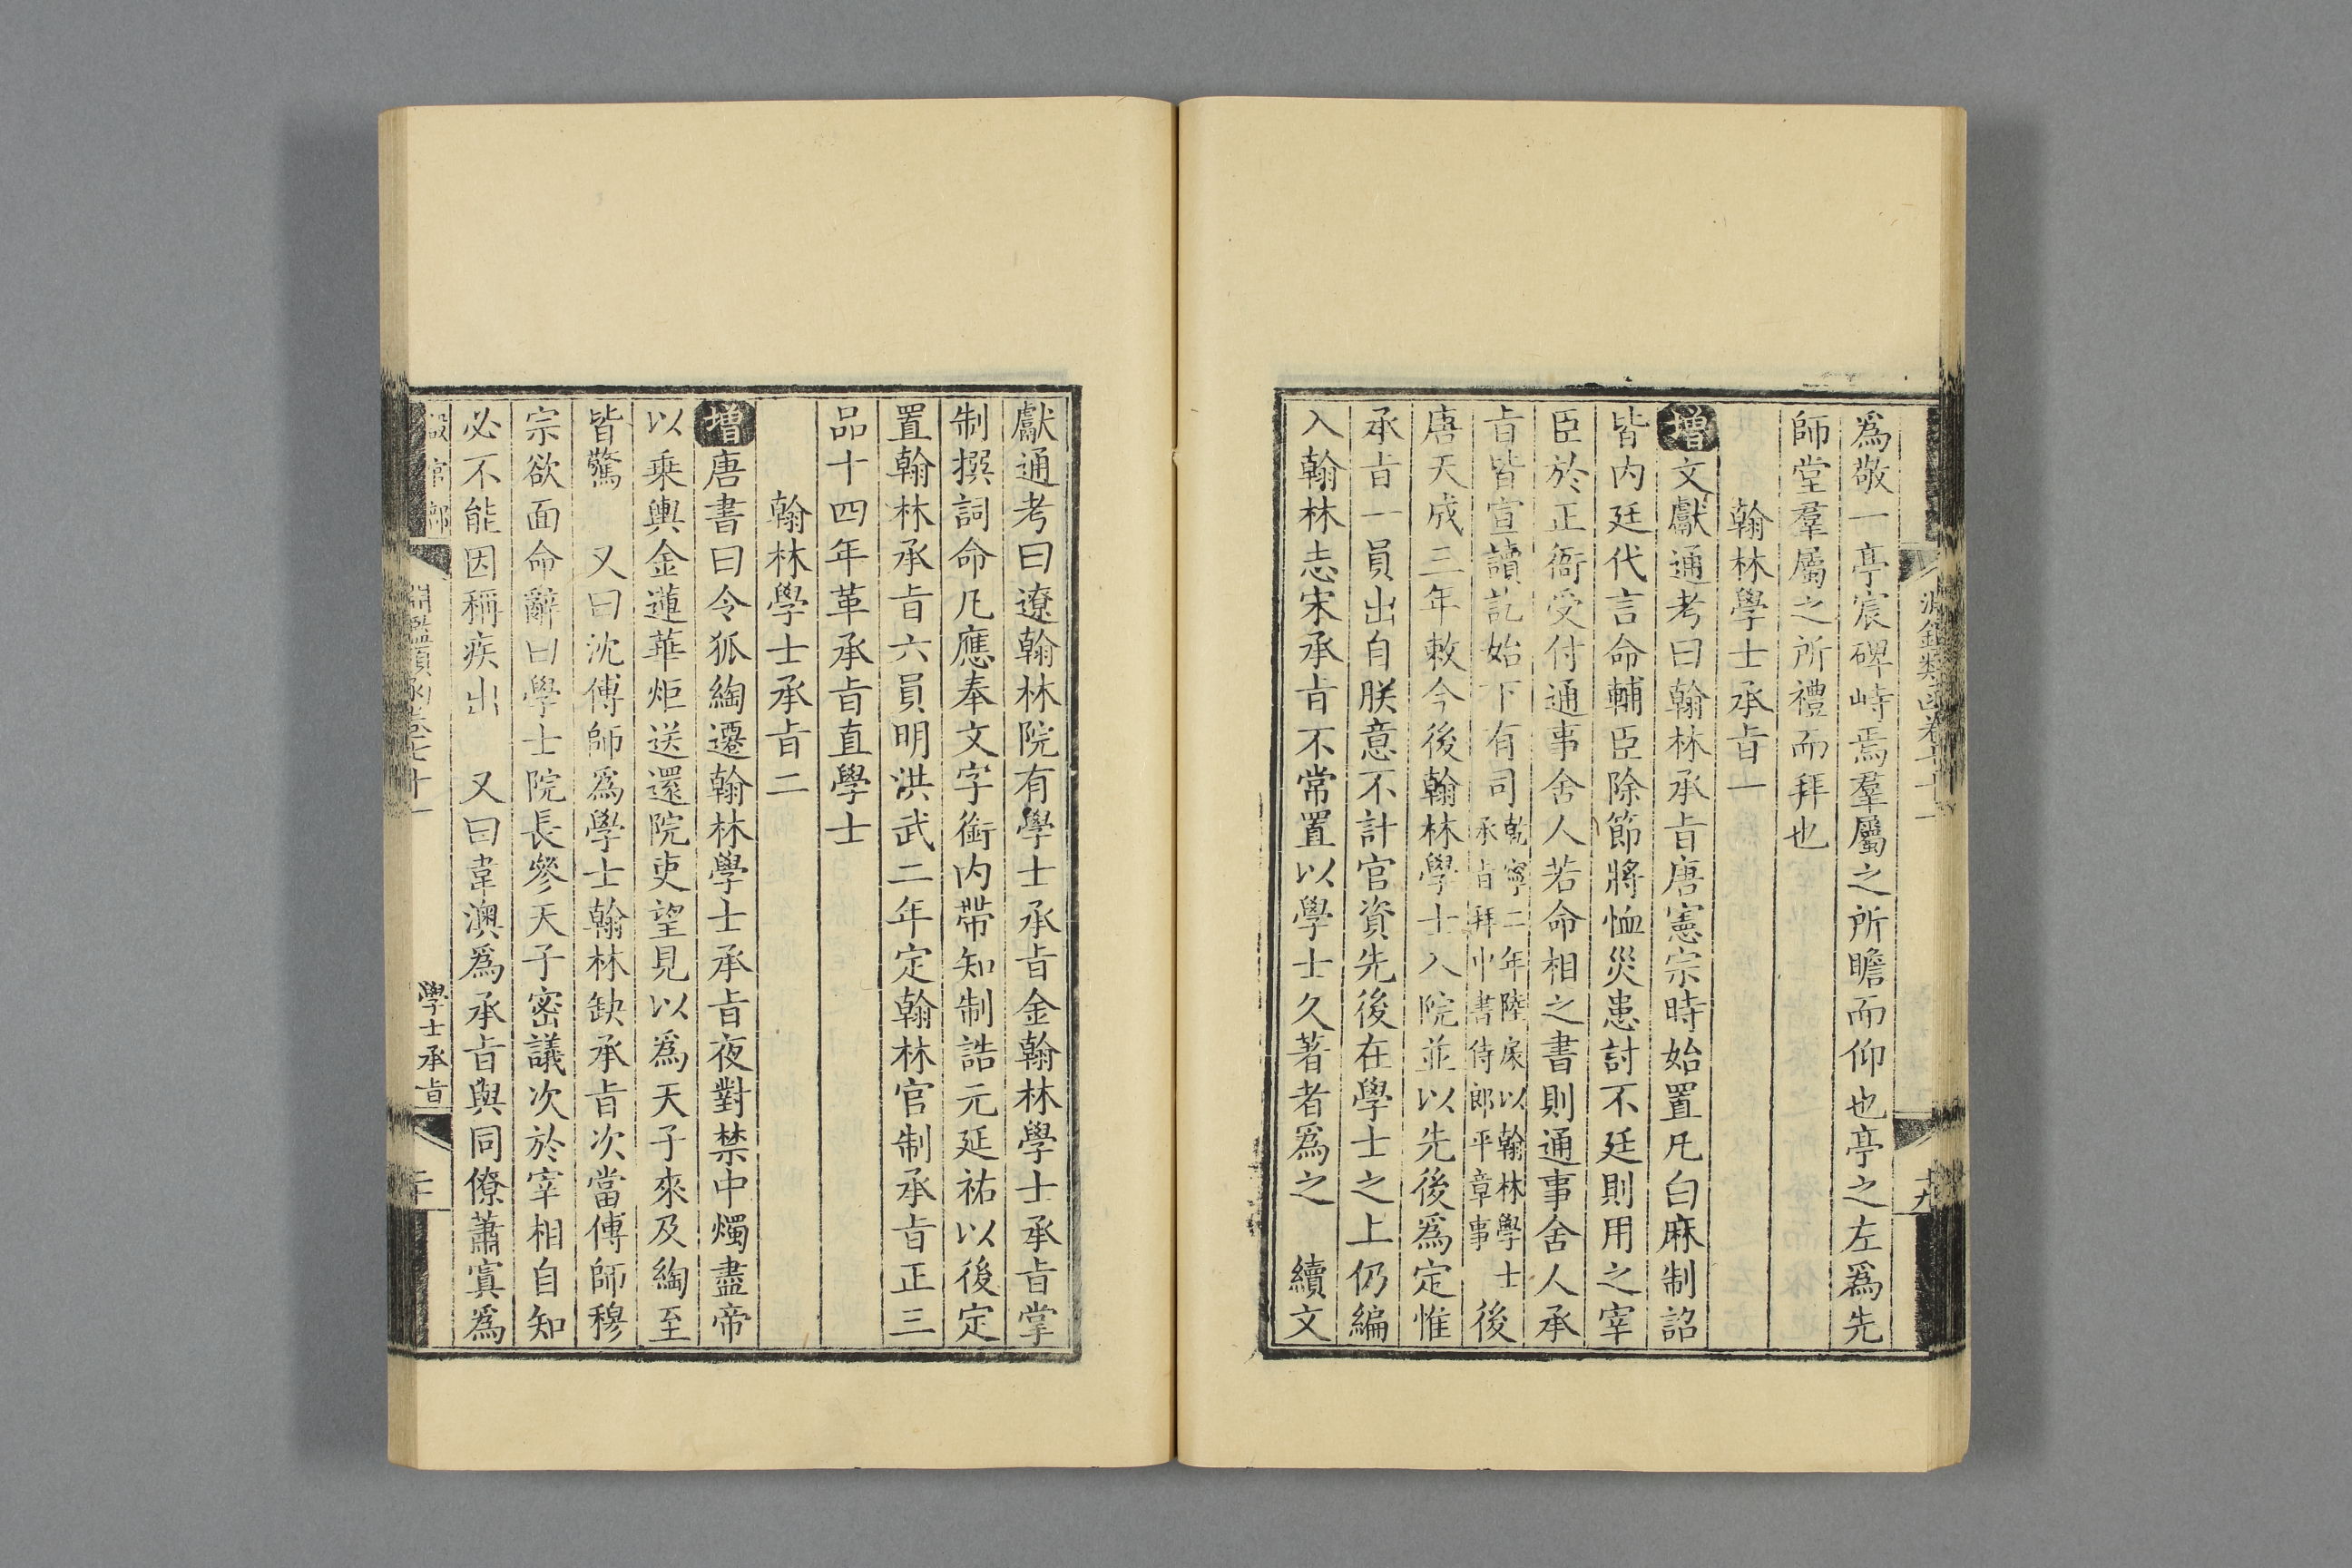 淵鑑類函卷七十一
十九
爲敬一亭宸碑峙焉羣屬之所瞻而仰也亭之左爲先
師堂羣屬之所禮而拜也
翰林學士承旨一
增文獻通考曰翰林承旨唐憲宗時始置凡白麻制詔
皆内廷代言命輔臣除節將恤災患討不廷則用之宰
臣於正衙受付通事舍人若命相之書則通事舍人承
旨皆宣讀訖始下有司乾寧二年陸扆以翰林學士承旨拜中書侍郎平章事後
唐天成三年敕今後翰林學士入院並以先後爲定惟
承旨一員出自朕意不計官資先後在學士之上仍編
入翰林志宋承旨不常置以學士久著者爲之　續文
獻通考曰遼翰林院有學士承旨金翰林學士承旨掌
制撰詞命凡應奉文字銜内帶知制誥元延祐以後定
置翰林承旨六員明洪武二年定翰林官制承旨正三
品十四年革承旨直學士
翰林學士承旨二
增唐書曰令狐綯遷翰林學士承旨夜對禁中燭盡帝
以乘輿金蓮華炬送還院吏望見以爲天子來及綯至
皆驚　又曰沈傅師爲學士翰林缺承旨次當傅師穆
宗欲面命辭曰學士院長參天子密議次於宰相自知
必不能因稱疾出　又曰韋澳爲承旨與同僚蕭寘爲
設官部
淵鑑類函卷七十一
學士承旨
二十